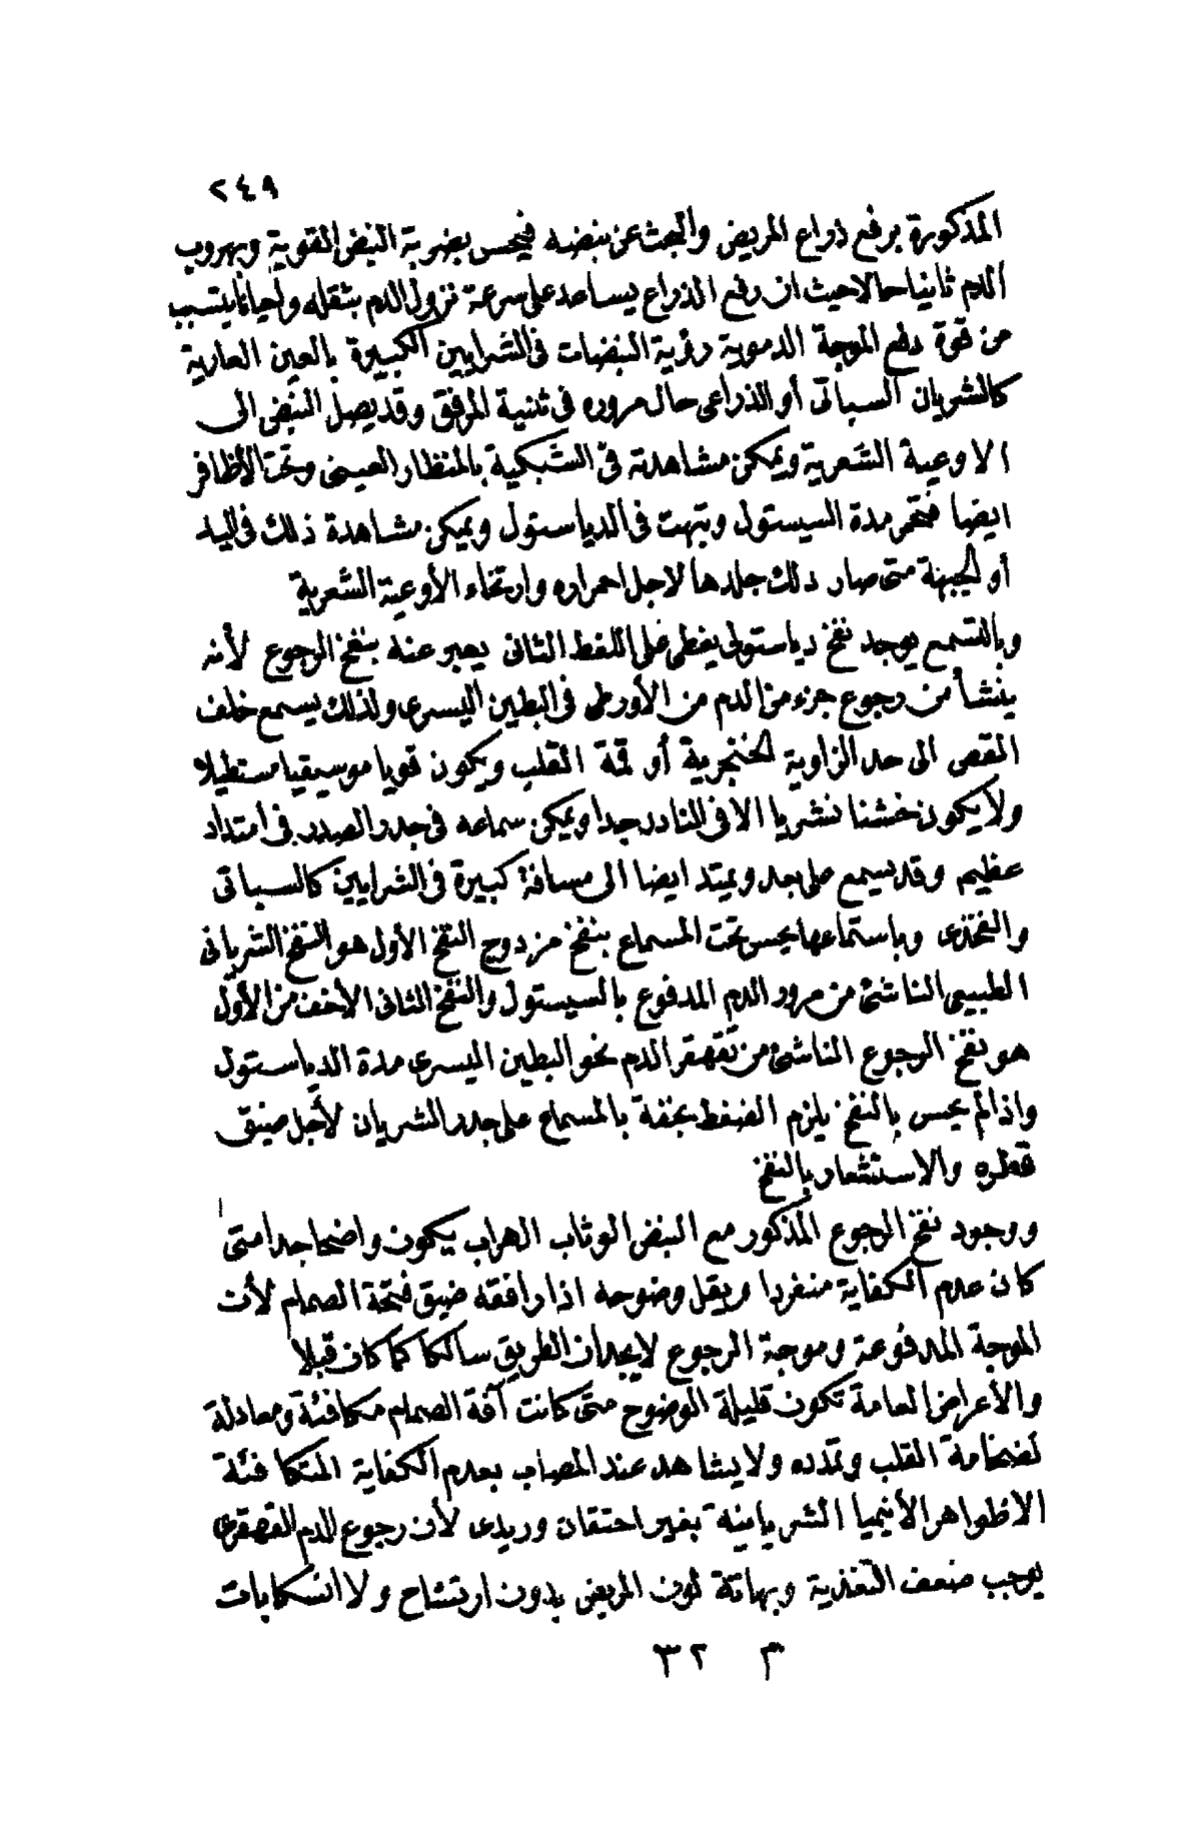 ٢٤٩
المذكورة برفع ذراع المريض والبحث عن نبضه فيحس بضربة النبض القوية وبهروب
الدم ثانيا حالا حيث ان رفع الذراع يساعد على سرعة نزول الدم بثقله وأحيانا يتسبب
من قوة دفع الموجة الدموية رؤية النبضات فى الشرايين الكبيرة بالعين العارية
كالشريان السباتى أو الذراعى حال مروره فى ثنية المرفق وقد يصل النبض الى
الاوعية الشعرية ويمكن مشاهدته فى الشبكية بالمنظار العينى وتحت الأظافر
ايضا فتحمر مدة السيستول وتبهت فى الدياستول ويمكن مشاهدة ذلك فى اليد
أو الجبهة متى صار دلك جلدها لاجل احمراره وارتخاء الأوعية الشعرية
وبالتسمع يوجد نفخ دياستولى يغطى على اللغط الثانى يعبر عنه بنفخ الرجوع لأنه
ينشأ من رجوع جزء من الدم من الأورطى فى البطين اليسرى ولذلك يسمع خلف
القص الى حد الزاوية الخنجرية أو قمة القلب ويكون قويا موسيقيا مستطيلا
ولا يكون خشنا نشريا الا فى النادر جدا ويمكن سماعه فى جدر الصدر فى امتداد
عظيم وقد يسمع على بعد ويمتد ايضا الى مسافة كبيرة فى الشرايين كالسباتى
والفخذى وباستماعها يحس تحت المسماع بنفخ مزدوج النفخ الأول هو النفخ الشريانى
الطبيعى الناشئ من مرور الدم المدفوع بالسيستول والنفخ الثانى الأخف من الأول
هو نفخ الرجوع الناشئ من تقهقر الدم نحو البطين اليسرى مدة الدياستول
واذا لم يحس بالنفخ يلزم الضغط بخفة بالمسماع على جدر الشريان لأجل ضيق
قطره والاستشعار بالنفخ
ووجود نفخ الرجوع المذكور مع النبض الوثاب الهراب يكون واضحا جدا متى
كان عدم الكفاية منفردا ويقل وضوحه اذا رافقه ضيق فتحة الصمام لأن
الموجة المدفوعة وموجة الرجوع لا يجدان الطريق سالكا كما كان قبلا
والأعراض العامة تكون قليلة الوضوح متى كانت آفة الصمام مكافئة ومعادلة
لضخامة القلب وتمدده ولا يشاهد عند المصاب بعدم الكفاية المتكافئة
الا ظواهر الأنيميا الشريانية بغير احتقان وريدى لأن رجوع الدم القهقرى
يوجب ضعف التغذية وبهاتة لون المريض بدون ارتشاح ولا انسكابات
م ٣٢